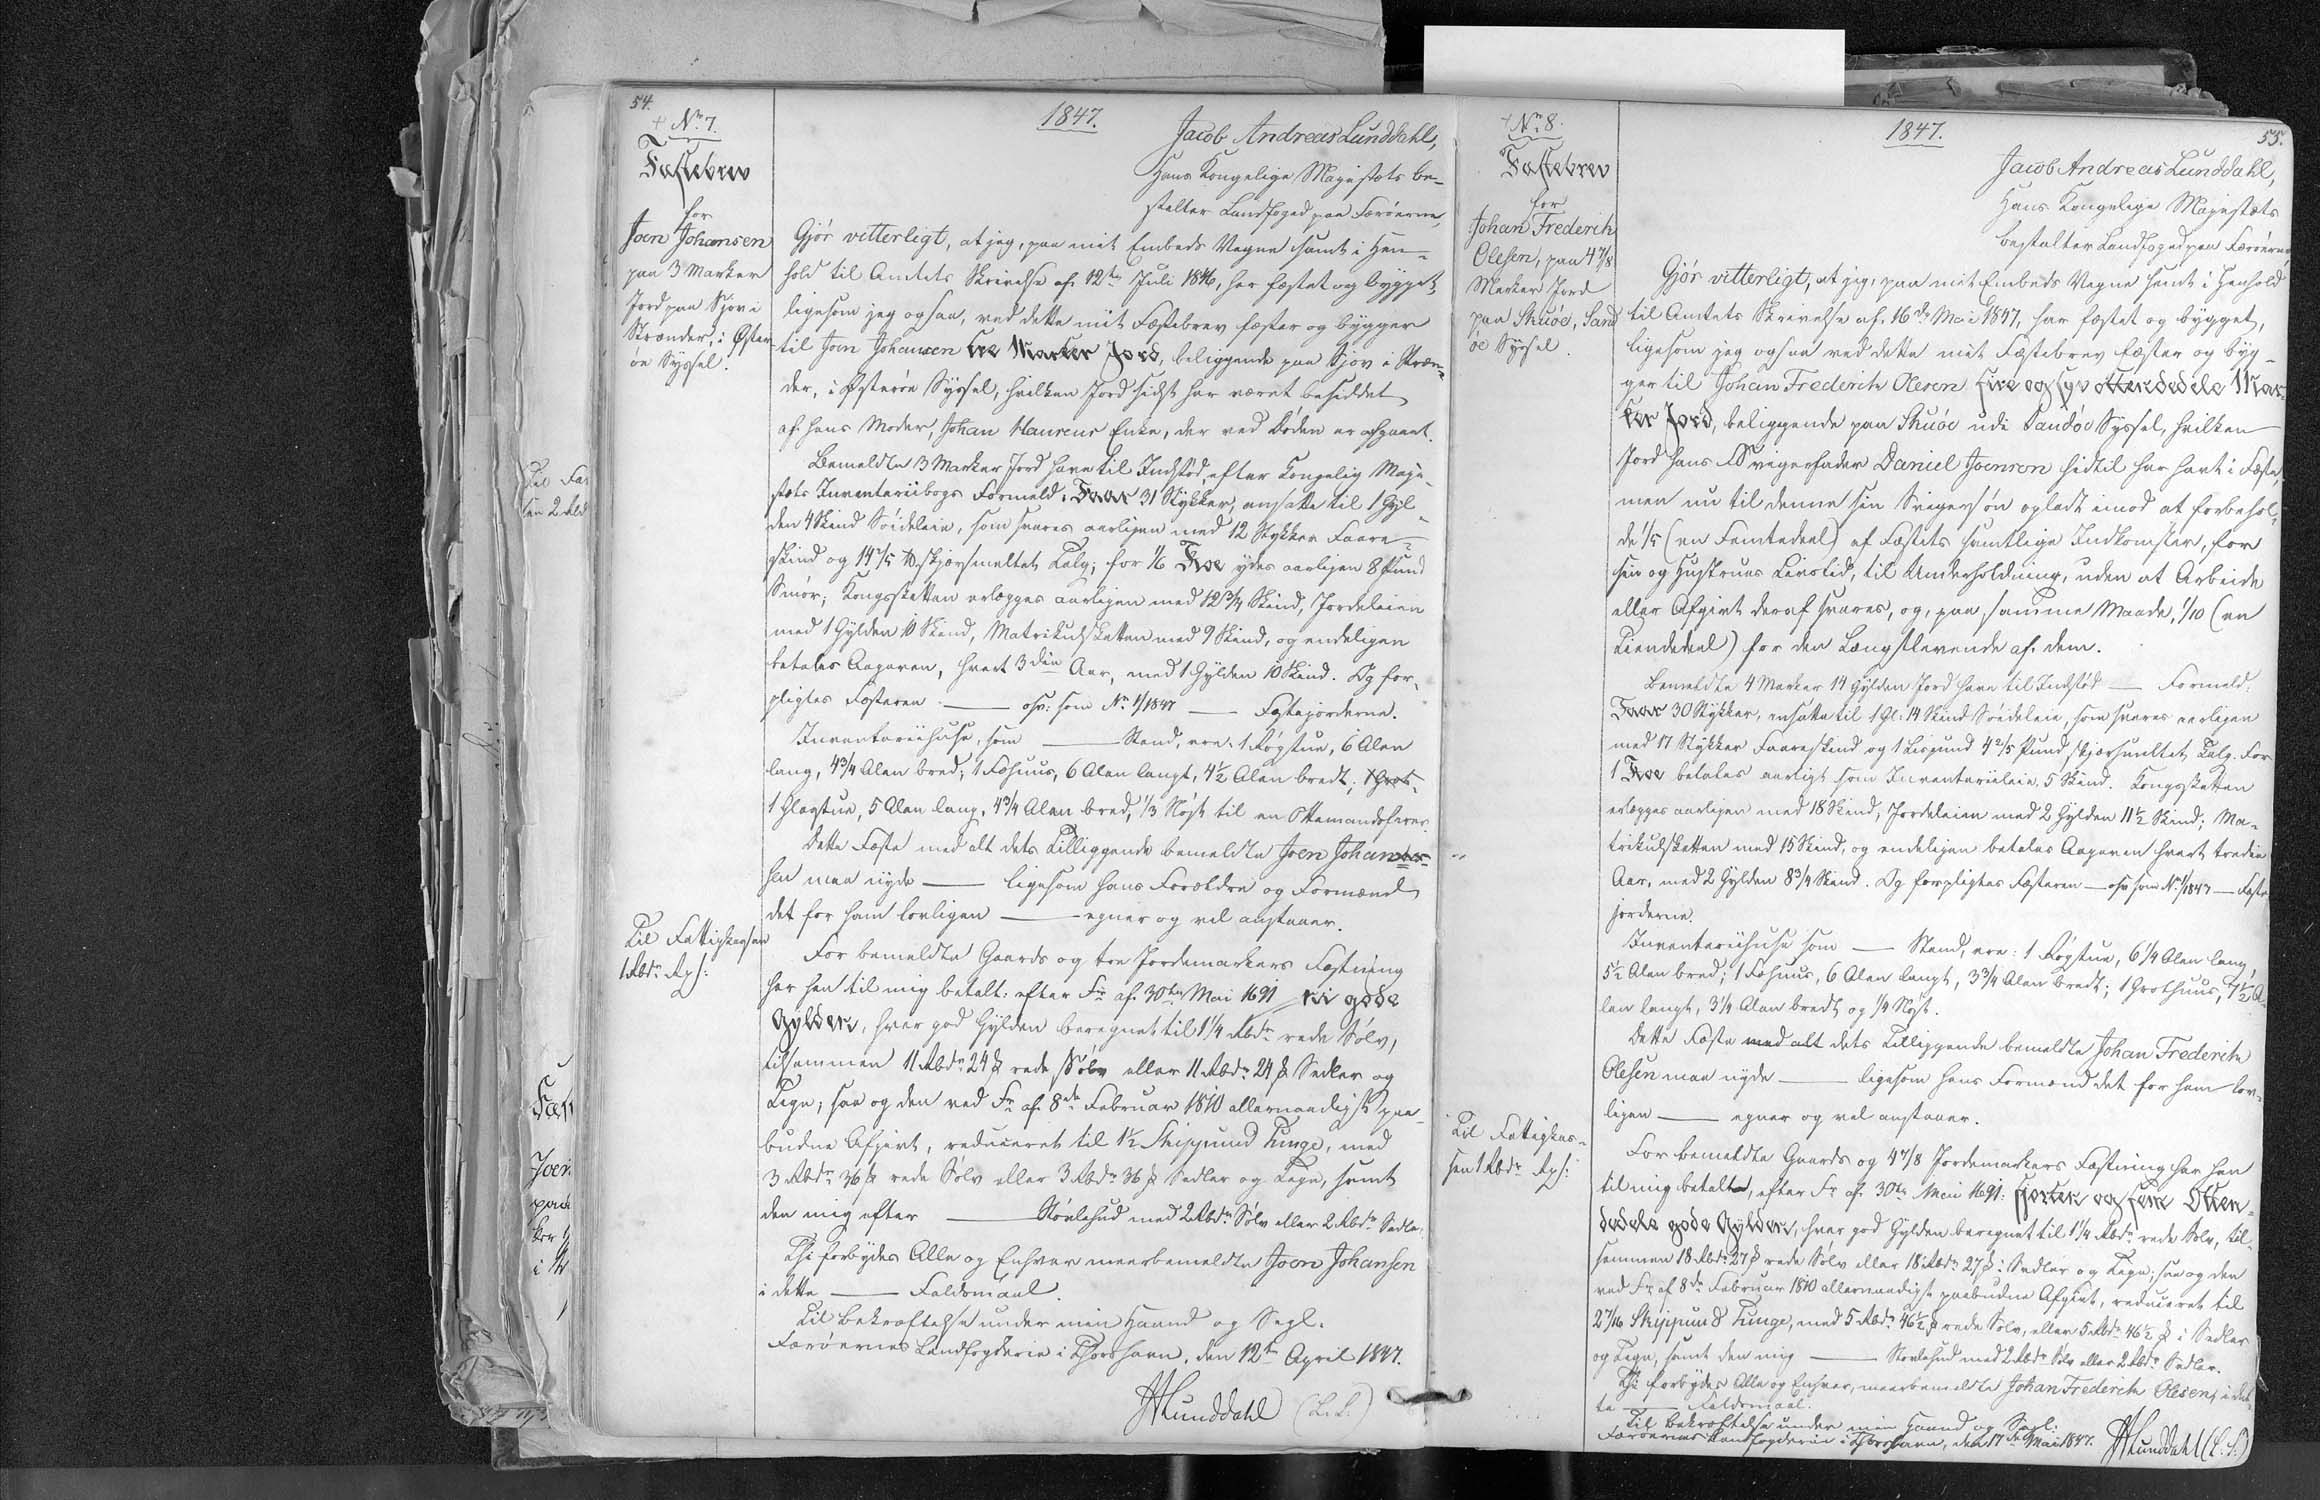 54.
+ No 7.
Fæstebrev
for
Joen Johansen
paa 3 Marker
Jord paa Sjov i
Strænder, i Øster-
öe Syssel.
Til Fattigkassen
1 Rbdr. Rep:
1847.
Jacob Andreas Lunddahl,
Hans Kongelige Majestæts be-
stalter Landfoged paa Færöerne,
Gjör vitterligt, at jeg, paa mit Embeds Vegne samt i Hen-
hold til Amtets Skrivelse af 12te Juli 1846, har fæstet og bygget,
ligesom jeg ogsaa, ved dette mit Fæstebrev fæster og bygger
til Joen Johansen tre Marker Jord, beliggende paa Sjov i Stræn-
der, i Österöe Syssel, hvilken Jord sidst har været besiddet
af hans Moder, Johan Hansens Enke, der ved Döden er afgaaet.
Bemeldte 3 Marker Jord have til Indstöd, efter Kongelig Maje-
stæts Inventariibogs Formeld: Faar 31 Stykker, ansatte til 1 Gyl-
den 4 Skind Söideleie, som svares aarligen med 12 Stykker Faare-
skind og 14 2/5 ℔ skjærsmeltet Talg; for 1/6 Koe ydes aarligen 8 Pund
Smör; Kongsskatten erlægges aarligen med 12 3/4 Skind, Jordeleien
med 1 Gylden 10 Skind, Matrikulskatten med 9 Skind, og endeligen
betales Aagaven, hvert 3die Aar, med 1 Gylden 10 Skind. Og for-
pligtes Fæsteren — osv: som No 1/1847 — Fæstejorderne.
Inventariihuse, som — Stand, ere: 1 Rögstue, 6 Alen
lang, 4 3/4 Alen bred; 1 Fæhuus, 6 Alen langt, 4 1/2 Alen bredt;
1 Glasstue, 5 Alen lang, 4 3/4 Alen bred, 1/3 Nöst til en Ottemandsfarer.
Dette Fæste med alt dets Tilliggende bemeldte Joen Johan-
sen maa nyde — ligesom hans Forældre og Formænd
det for ham lovligen — egner og vel anstaaer.
For bemeldte Gaards og tre Jordemarkers Fæstning
har han til mig betalt: efter Fr. af 30te Mai 1691 ni gode
Gylden, hver god Gylden beregnet til 1 1/4 Rbdr rede Sölv,
tilsammen 11 Rbdr 24 ß rede Sölv eller 11 Rbdr 24 ß Sedler og
Tegn; saa og den ved Fr. af 8de Februar 1810 allernaadigst paa-
budne Afgivt, reduceret til 1 1/2 Skippund Tunge, med
3 Rbdr 36 ß rede Sölv eller 3 Rbdr 36 ß Sedler og Tegn, samt
den mig efter — Stövlehud med 2 Rbdr Sölv eller 2 Rbdr Sedler.
Thi forbydes Alle og Enhver meerbemeldte Joen Johansen
i dette — Faldsmaal.
Til Bekræftelse under min Haand og Segl.
Færöernes Landfogderie i Thorshavn, den 12te April 1847.
JALunddahl (L. S.)
55.
+ No 8.
Fæstebrev
for
Johan Frederik
Olesen, paa 4 7/8
Marker Jord
paa Skuöe, Sand
öe Syssel.
Til Fattigkas-
sen 1 Rbdr Rep:
1847.
Jacob Andreas Lunddahl,
Hans Kongelige Majestæts
bestalter Landfoged paa Færöerne,
Gjör vitterligt, at jeg, paa mit Embeds Vegne samt i Henhold
til Amtets Skrivelse af 16de Mai 1847, har fæstet og bygget,
ligesom jeg ogsaa ved dette mit Fæstebrev fæster og byg-
ger til Johan Frederik Olesen fire og syv ottendedele Mar-
ker Jord, beliggende paa Skuöe udi Sandöe Syssel, hvilken
Jord hans Svigerfader Daniel Joensen hidtil har havt i Fæste,
men nu til denne sin Svigersön opladt imod at forbehol-
de 1/5 (en Femtedeel) af Fæstets samtlige Indkomster, for
sin og Hustrues Livstid, til Underholdning, uden at Arbeide
eller Afgivt deraf svares, og, paa samme Maade, 1/10 (en
Tiendedeel) for den Længstlevende af dem.
Bemeldte 4 Marker 14 Gylden Jord have til Indstöd — Formeld.
Faar 30 Stykker, ansatte til 1 Gl: 14 Skind Söideleie, som svares aarligen
med 17 Stykker Faareskind og 1 Lispund 4 2/5 Pund skjærsmeltet Talg. For
1 Koe betales aarligt som Inventariileie 5 Skind. Kongsskatten
erlægges aarligen med 18 Skind, Jordeleien med 2 Gylden 11 1/2 Skind; Ma-
trikulskatten med 15 Skind, og endeligen betales Aagaven hvert tredie
Aar, med 2 Gylden 8 3/4 Skind. Og forpligtes Fæsteren — osv som No 1/1847 — Fæste
jorderne.
Inventariihuse som — Stand, ere: 1 Rögstue, 6 1/4 Alen lang,
5 1/2 Alen bred; 1 Fæhuus, 6 Alen langt, 3 3/4 Alen bredt; 1 Grothuus, 7 1/2 A-
len langt, 3 1/4 Alen bredt og 1/4 Nöst.
Dette Fæste med alt dets Tilliggende bemeldte Johan Frederik
Olesen maa nyde — ligesom hans Formænd det for ham lov-
ligen — egner og vel anstaaer.
For bemeldte Gaards og 4 7/8 Jordemarkers Fæstning har han
til mig betalt, efter Fr. af 30te Mai 1691: fjorten og fem Otten-
dedele gode Gylden, hver god Gylden beregnet til 1 1/4 Rbdr rede Sölv, til-
sammen 18 Rbdr 27 ß rede Sölv eller 18 Rbdr 27 ß i Sedler og Tegn; saa og den
ved Fr. af 8de Februar 1810 allernaadigst paabudne Afgivt, reduceret til
2 7/16 Skippund Tunge, med 5 Rbdr 46 1/2 ß rede Sölv, eller 5 Rbdr 46 1/2 ß i Sedler
og Tegn, samt den mig — Stövlehud med 2 Rbdr Sölv eller 2 Rbdr Sedler.
Thi forbydes Alle og Enhver, meerbemeldte Johan Frederik Olesen, i det-
te — Faldsmaal.
Til Bekræftelse under min Haand og Segl.
Færöernes Landfogderie i Thorshavn, den 17de Mai 1847. JALunddahl (L. S.)